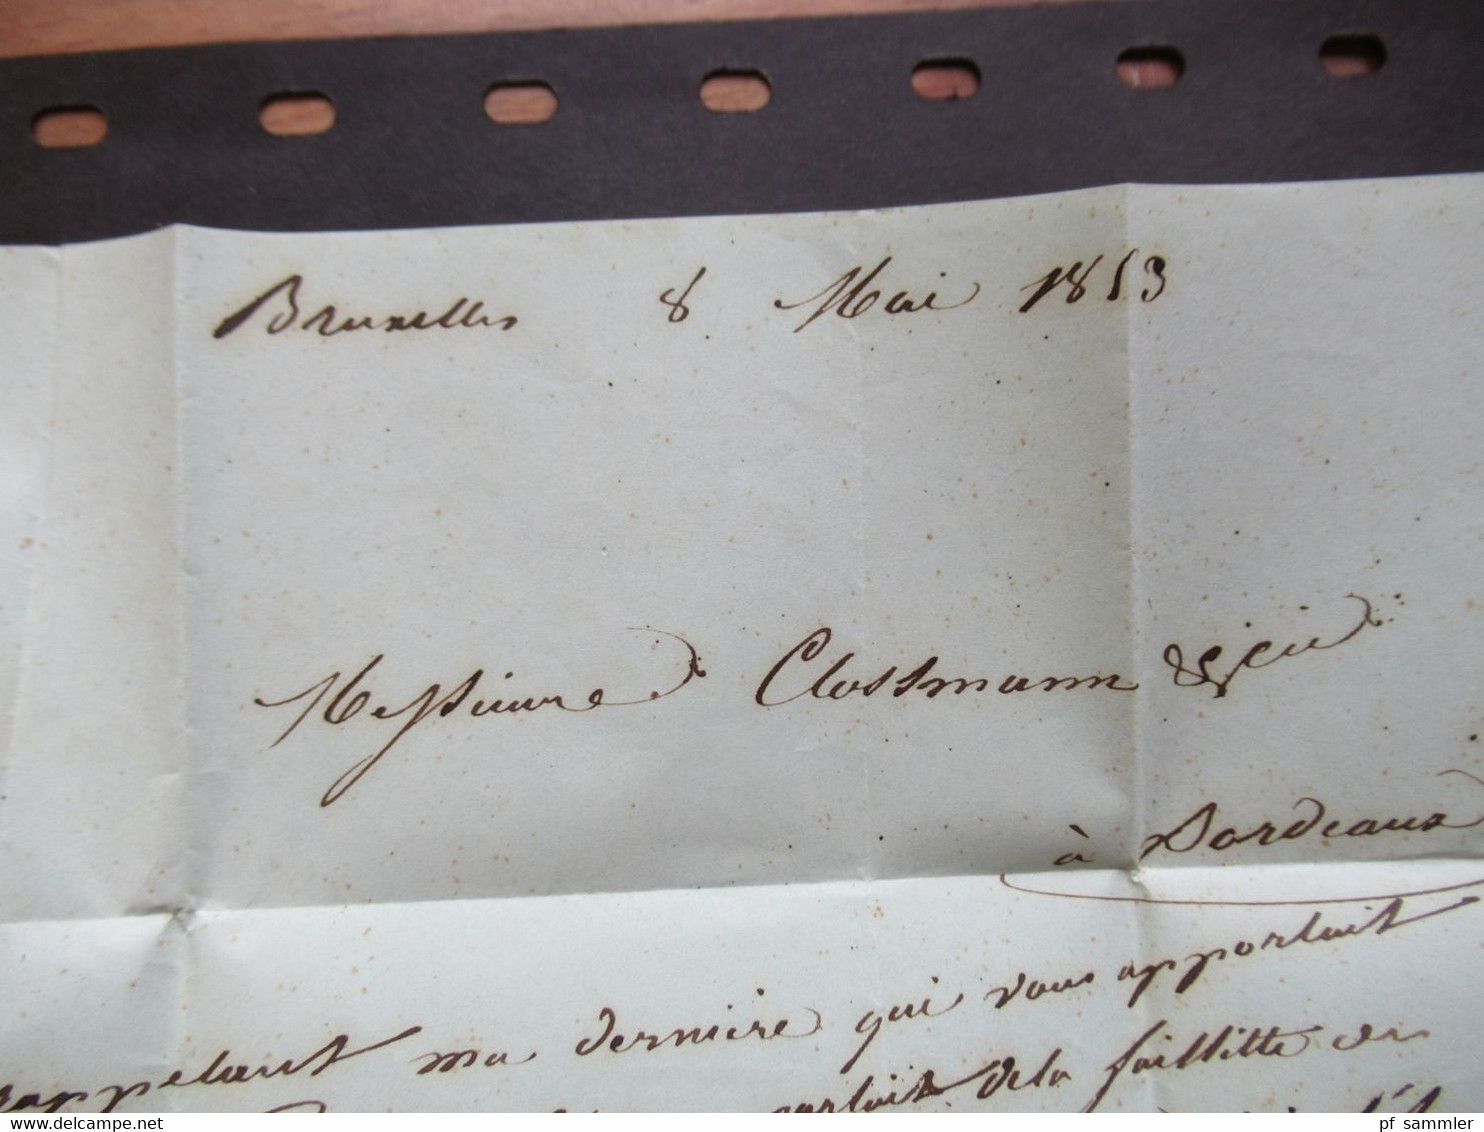 Bruxelles 8 Mai 1853
Messieurs Clossmann & Cie
à Bordeaux
rappelant ma dernière qui vous apportait
parlait de la faillitte
pf_sammler